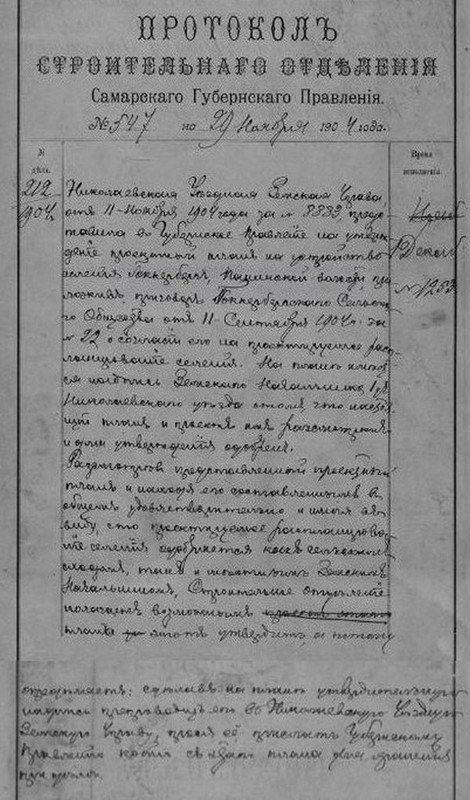 ПРОТОКОЛЪ
СТРОИТЕЛЬНАГО ОТДѢЛЕНІЯ
Самарскаго Губернскаго Правленія.
№ 547 на 29 Ноября 1904 года.
№ дѣла.
212
1904
Время исполненія.
Декаб
№ 1253
Николаевская Уѣздная Земская Управа,
отъ 11 Ноября 1904 года за № 8882, предс-
тавила въ Губернское Правленіе на утверж-
деніе проектный планъ на устройство
селенія Гоккерберга, волости, при-
ложивъ приговоръ Гоккербергскаго Сельска-
го Общества отъ 11 Сентября 1904 г. за
№ 22 о согласіи его на проектируемое рас-
планированіе селенія. На планѣ имѣет-
ся надпись Земскаго Начальника 1 уч.
Николаевскаго уѣзда о томъ, что настоя-
щій планъ и проектъ имъ разсмотрѣнъ
и для утвержденія одобренъ.
Разсмотрѣвъ представленный проектный
планъ и находя его составленнымъ въ
общемъ удовлетворительно и имѣя въ
виду, что проектируемое распланирова-
ніе селенія одобряется какъ сельскимъ
сходомъ, такъ и мѣстнымъ Земскимъ
Начальникомъ, Строительное Отдѣленіе
полагаетъ возможнымъ
планъ этотъ утвердить, а потому
опредѣляетъ: сдѣлавъ на планѣ утвердительную
надпись препроводить его въ Николаевскую Уѣздную
Земскую Управу, прося её прислать Губернскому
Правленію копію съ этого плана для храненія
при дѣлѣ.